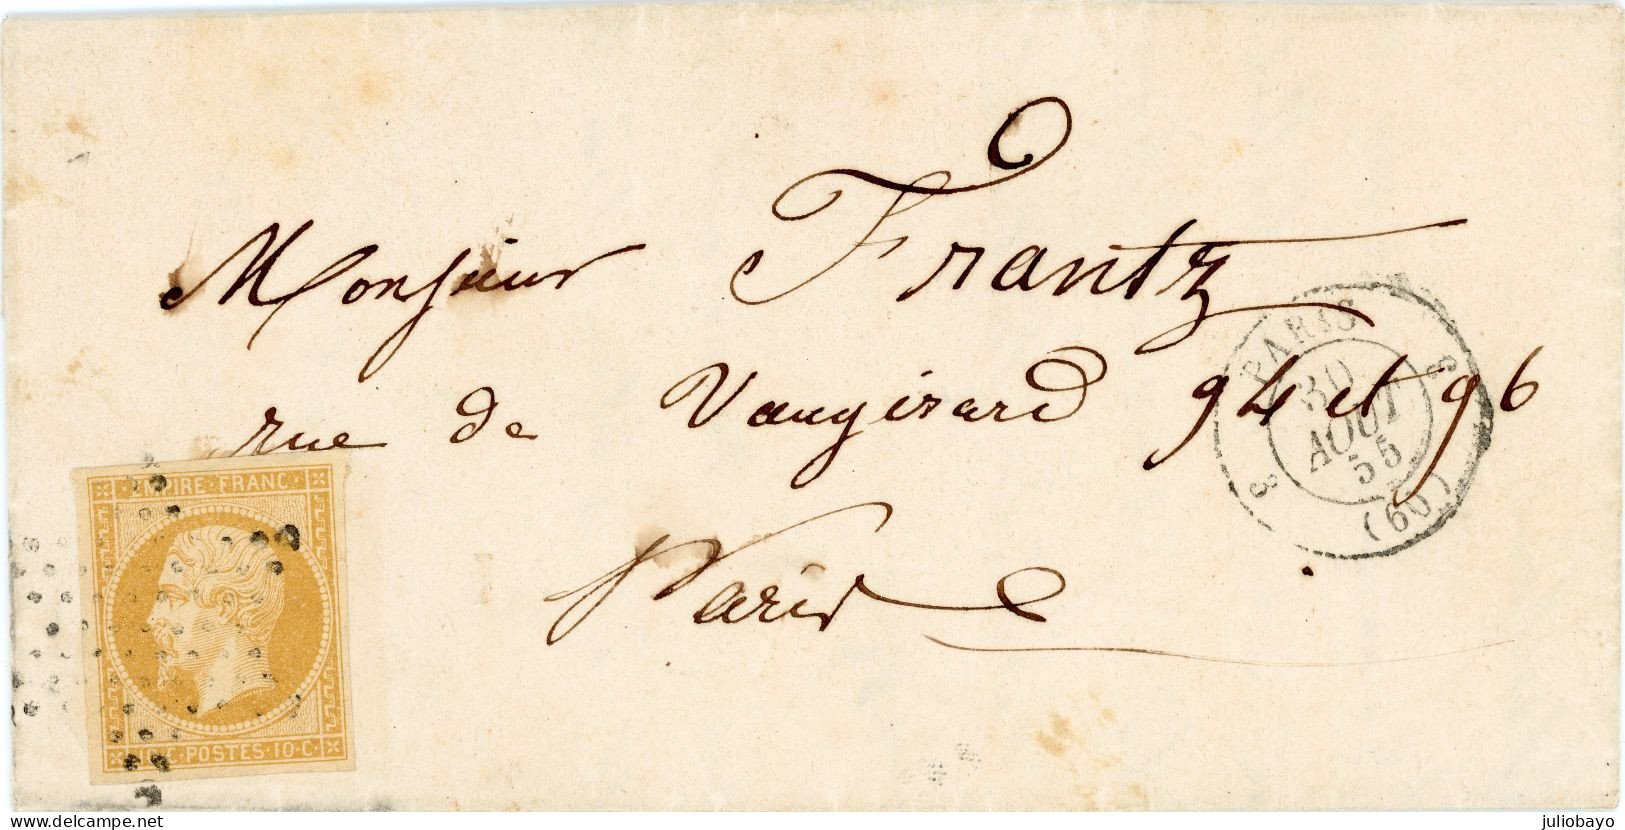 Monsieur Frantz
rue de Vaugirard 94 et 96
Paris
PARIS
30
AOUT
55
(60)
3 S
EMPIRE FRANC
10 C POSTES 10 C
delcampe.net
juliobayo